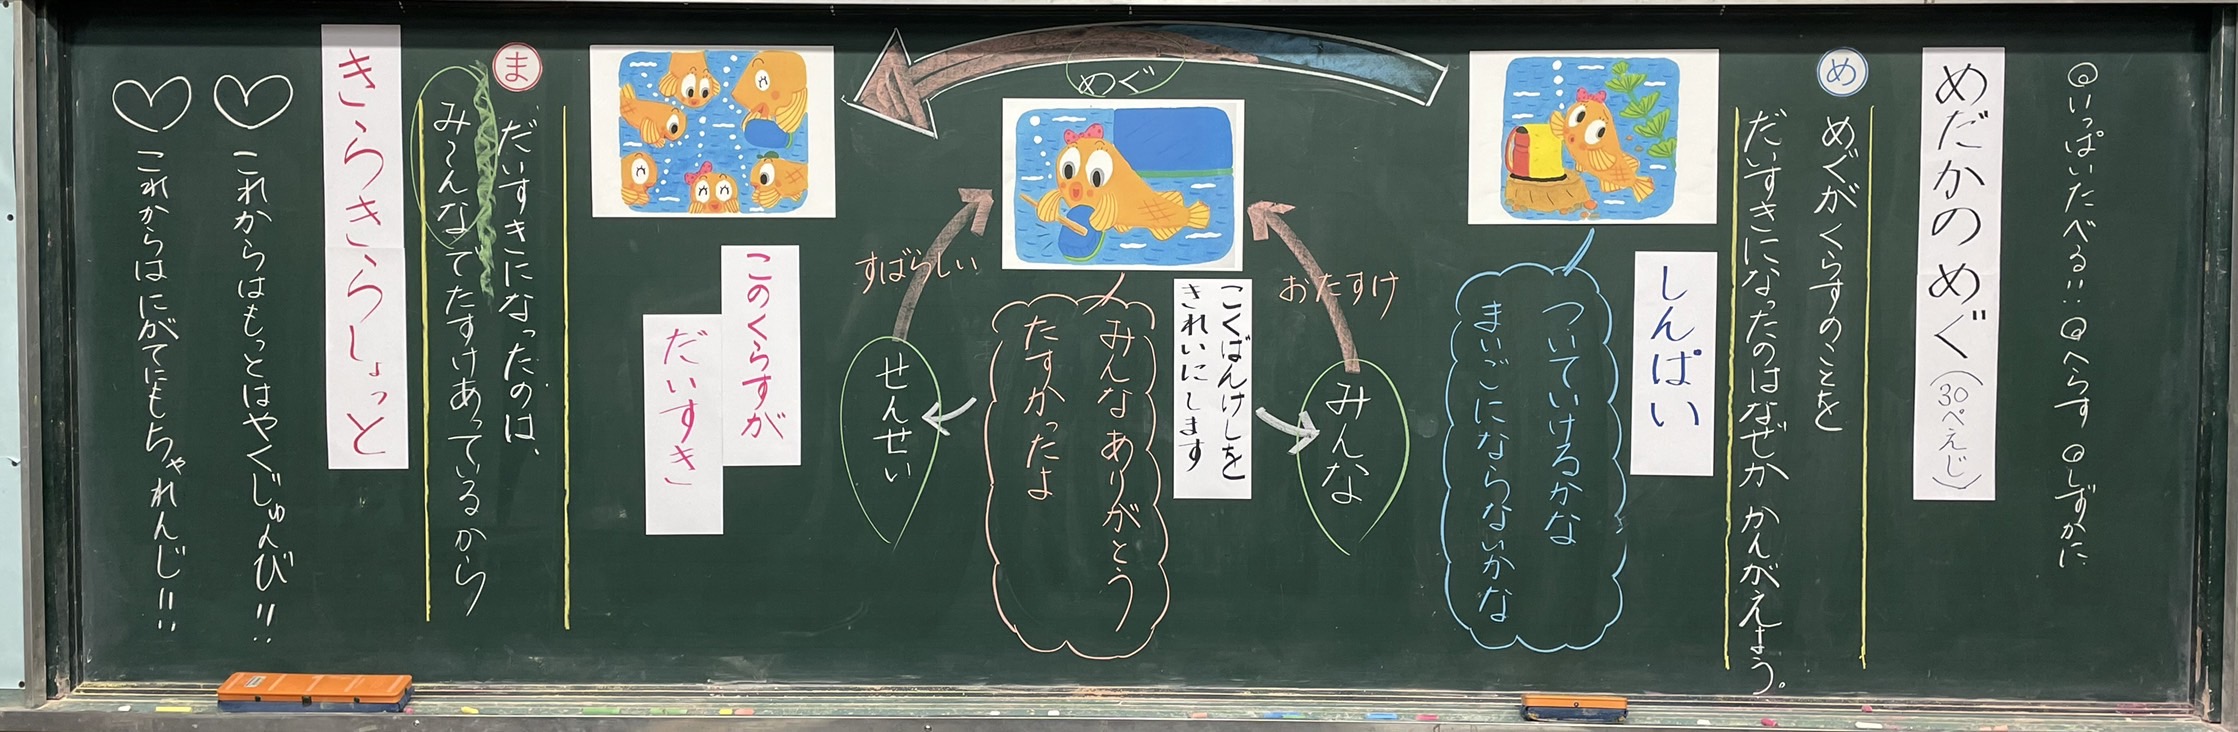 ◎いっぱいたべる!! ◎へらす ◎しずかに
めだかの めぐ(30ぺえじ)
め
めぐがくらすのことを
だいすきになったのはなぜか かんがえよう。
しんぱい
ついていけるかな
まいごにならないかな
めぐ
おたすけ
みんな
こくばんけしを
きれいにします
みんなありがとう
たすかったよ
すばらしい
せんせい
このくらすが
だいすき
ま
だいすきになったのは、
み~んなでたすけあっているから
きらきらしょっと
これからはもっとはやくじゅんび!!
これからはにがてにもちゃれんじ!!